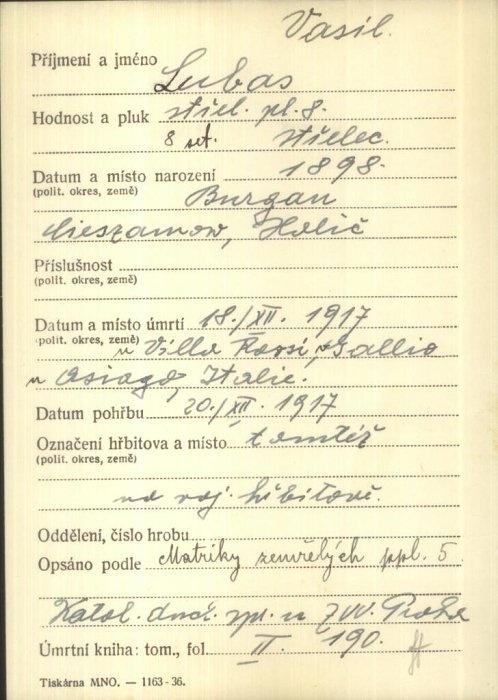 Vasil.
Příjmení a jméno Lubas
Hodnost a pluk střel. pl. 8.
8 set. střelec.
Datum a místo narození 1898.
(polit. okres, země) Burgan
Cieszanow, Holič
Příslušnost
(polit. okres, země)
Datum a místo úmrtí 18./XII. 1917
(polit. okres, země) u Villa Rossi, Gallio
u Asiago, Italie.
Datum pohřbu 20./XII. 1917
Označení hřbitova a místo tamtéž
(polit. okres, země)
na voj. hřbitově.
Oddělení, číslo hrobu
Opsáno podle Matriky zemřelých ppl. 5
Katol. duch. spr. u ZVV. Praha
Úmrtní kniha: tom., fol. II. 190.
Tiskárna MNO. — 1163-36.